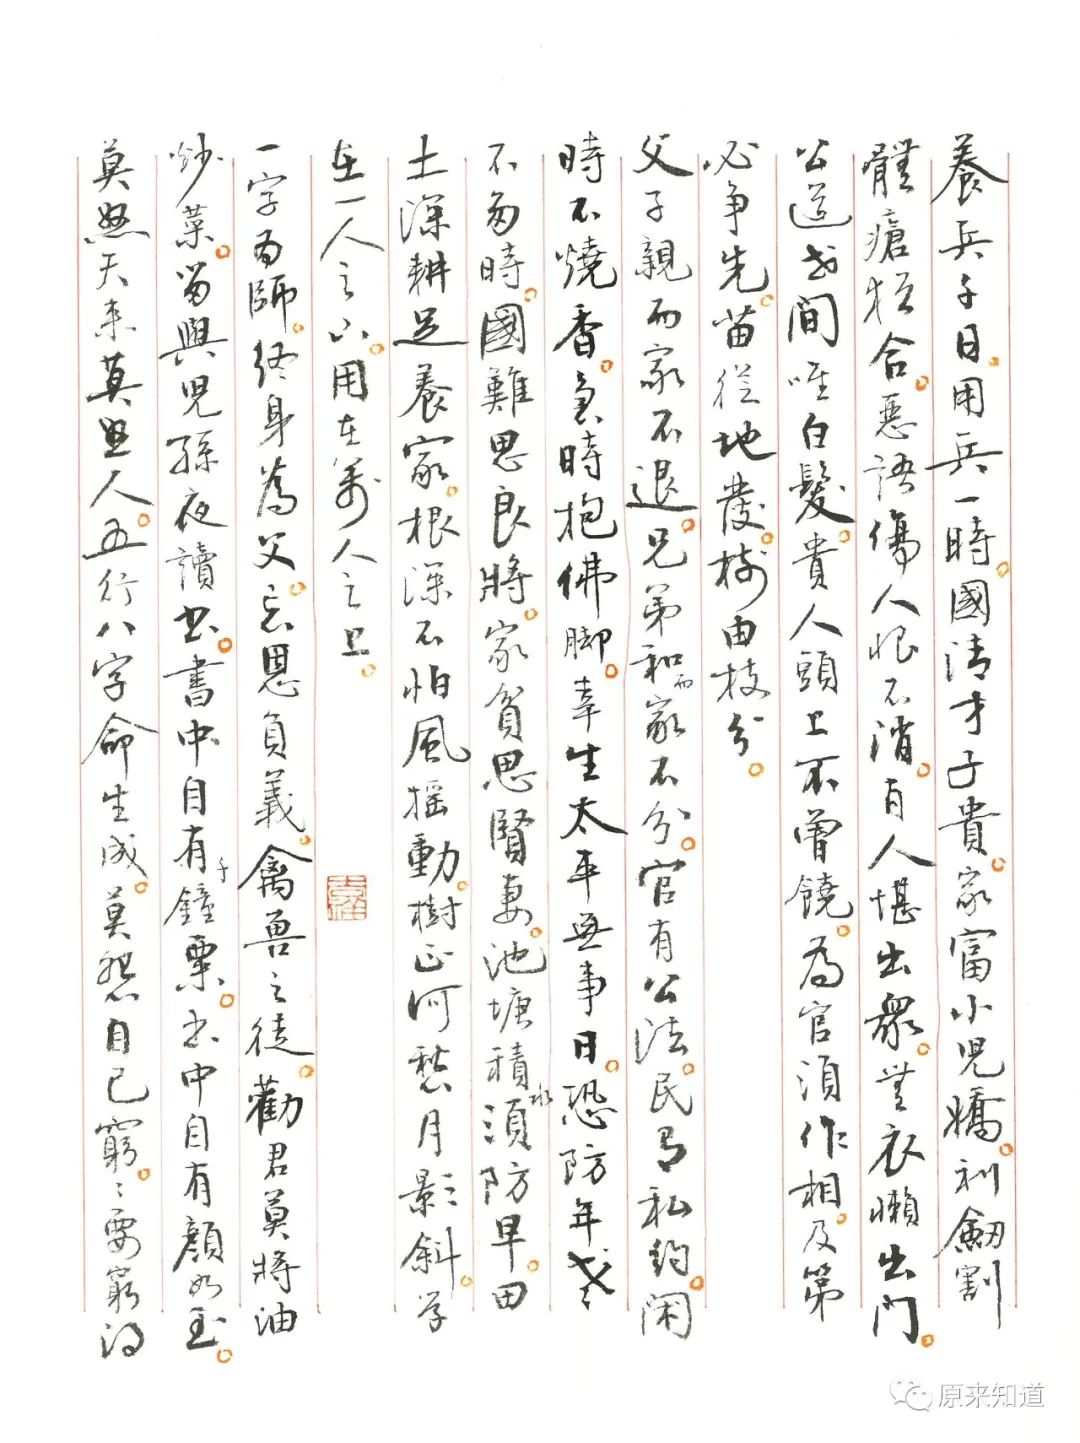 養兵千日。用兵一時。國清才子貴。家富小兒嬌。利劍割
體瘡猶合。惡語傷人恨不消。有人堪出眾。無衣懶出門。
公道世間唯白髮。貴人頭上不曾饒。為官須作相。及第
必爭先。苗從地發。樹由枝分。
父子親而家不退。兄弟和而家不分。官有公法。民有私約。閑
時不燒香。急時抱佛腳。幸生太平無事日。恐防年老
不多時。國難思良將。家貧思賢妻。池塘積水須防旱。田
土深耕足養家。根深不怕風搖動。樹正何愁月影斜。学
在一人之下。用在萬人之上。
一字為師。終身為父。忘恩負義。禽獸之徒。勸君莫將油
炒菜。留與兒孫夜讀书。書中自有千鐘粟。书中自有顏如玉。
莫怨天來莫怨人。五行八字命生成。莫怨自己窮。窮要窮得
原来知道